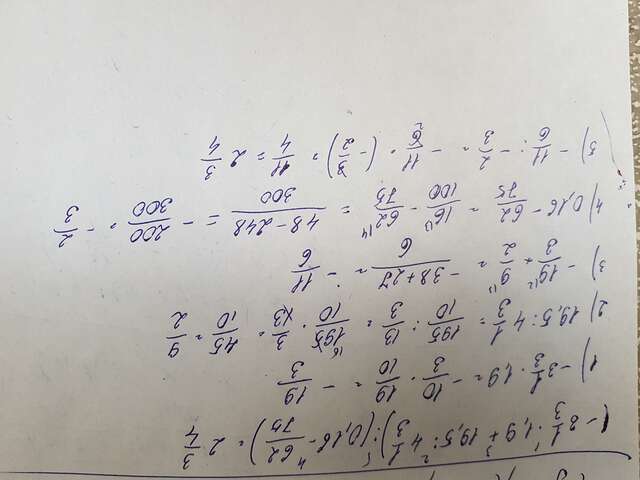 (-3 1/3 · 1,9 + 19,5 : 4 1/3) : (0,16 - 62/75) = 2 3/4
1) -3 1/3 · 1,9 = - 10/3 · 19/10 = - 19/3
2) 19,5 : 4 1/3 = 195/10 : 13/3 = 195/10 · 3/13 = 45/10 = 9/2
3) - 19/3 + 9/2 = -38+27/6 = - 11/6
4) 0,16 - 62/75 = 16/100 - 62/75 = 48-248/300 = - 200/300 = - 2/3
5) - 11/6 : - 2/3 = - 11/6 · (- 3/2) = 11/4 = 2 3/4